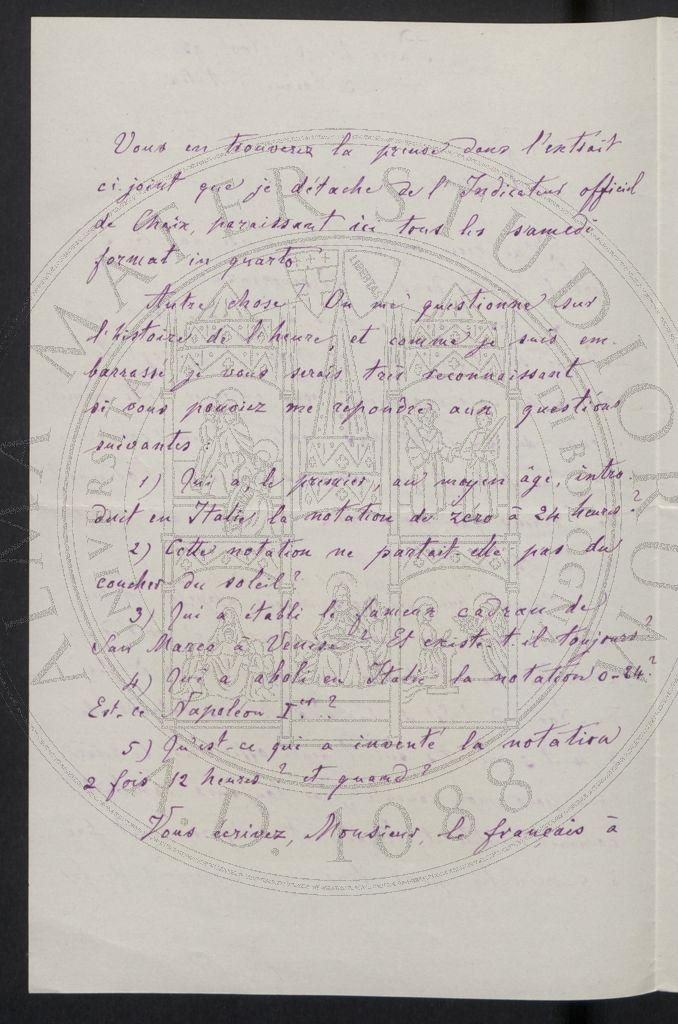 Vous en trouverez la preuve dans l'extrait
ci-joint que je détache de l'Indicateur officiel
de Chaix, paraissant ici tous les samedi
format in quarto.
Autre chose? On me questionne sur
l'histoire de l'heure, et comme je suis em-
barrassé je vous serais très reconnaissant
si vous pouviez me répondre aux questions
suivantes:
1) Qui a, le premier, au moyen âge, intro-
duit en Italie la notation de zéro à 24 heures?
2) Cette notation ne partait-elle pas du
coucher du soleil?
3) Qui a établi le fameux cadran de
San Marco à Venise? Et existe-t-il toujours?
4) Qui a aboli en Italie la notation 0-24?
Est-ce Napoléon Ier...?
5) Qu'est-ce qui a inventé la notation
2 fois 12 heures? et quand?
Vous écrivez, Monsieur, le français à
ALMA MATER STUDIORUM
A.D. 1088
LIBERTAS